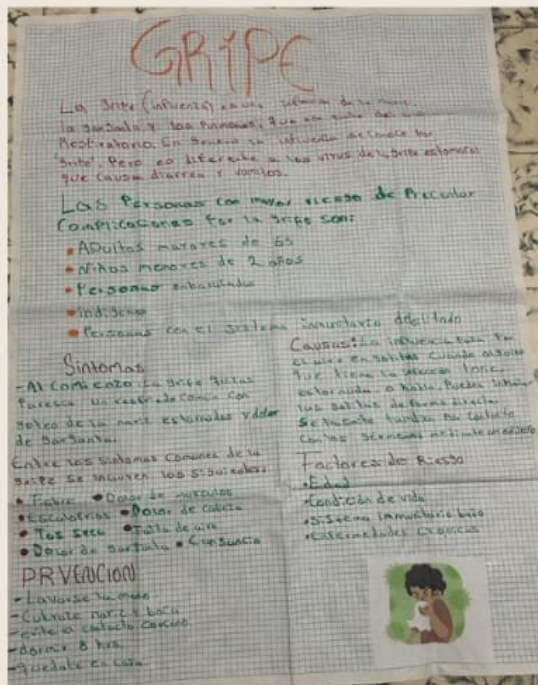 GRIPE
La Gripe (influenza) es una infección de la nariz,
la garganta y los Pulmones, que son parte del
Respiratorio. En la influenza se conoce por
"Gripe", Pero es diferente a los virus de la gripe estomacal
que causa diarrea y vomitos.
Las Personas con mayor riesgo de Presentar
Complicaciones Por la gripe son:
• Adultos mayores de 65
• Niños menores de 2 años
• Personas embarazadas
• indigena
• Personas con el sistema inmunitario debilitado
Sintomas
- Al Comienzo La gripe quizas
Paresca un resfriado Comun con
goteo de la nariz estornudos y dolor
de Garganta.
Entre los sintomas comunes de la
gripe se incluyen los siguientes.
• Fiebre • Dolor de musculos
• Escalofrios • Dolor de cabeza
• Tos seca • Falta de aire
• Dolor de garganta • Cansancio
PRVENCION
- Lavarse la mano
- Cubrase nariz y boca
- evite el contacto cercano
- dormir 8 hrs.
- quedate en casa
Causas: La influenza Pasa Por
el aire en gotitas Cuando alguien
que tiene la infeccion tose,
estornuda, o habla. Puedes inhalar
las gotitas de forma directa.
Se trasmite Por contacto
Con los Germenes mediante un objeto
Factores de Riesgo
• Edad
• Condición de vida
• Sistema Inmunitario bajo
• enfermedades Cronicas